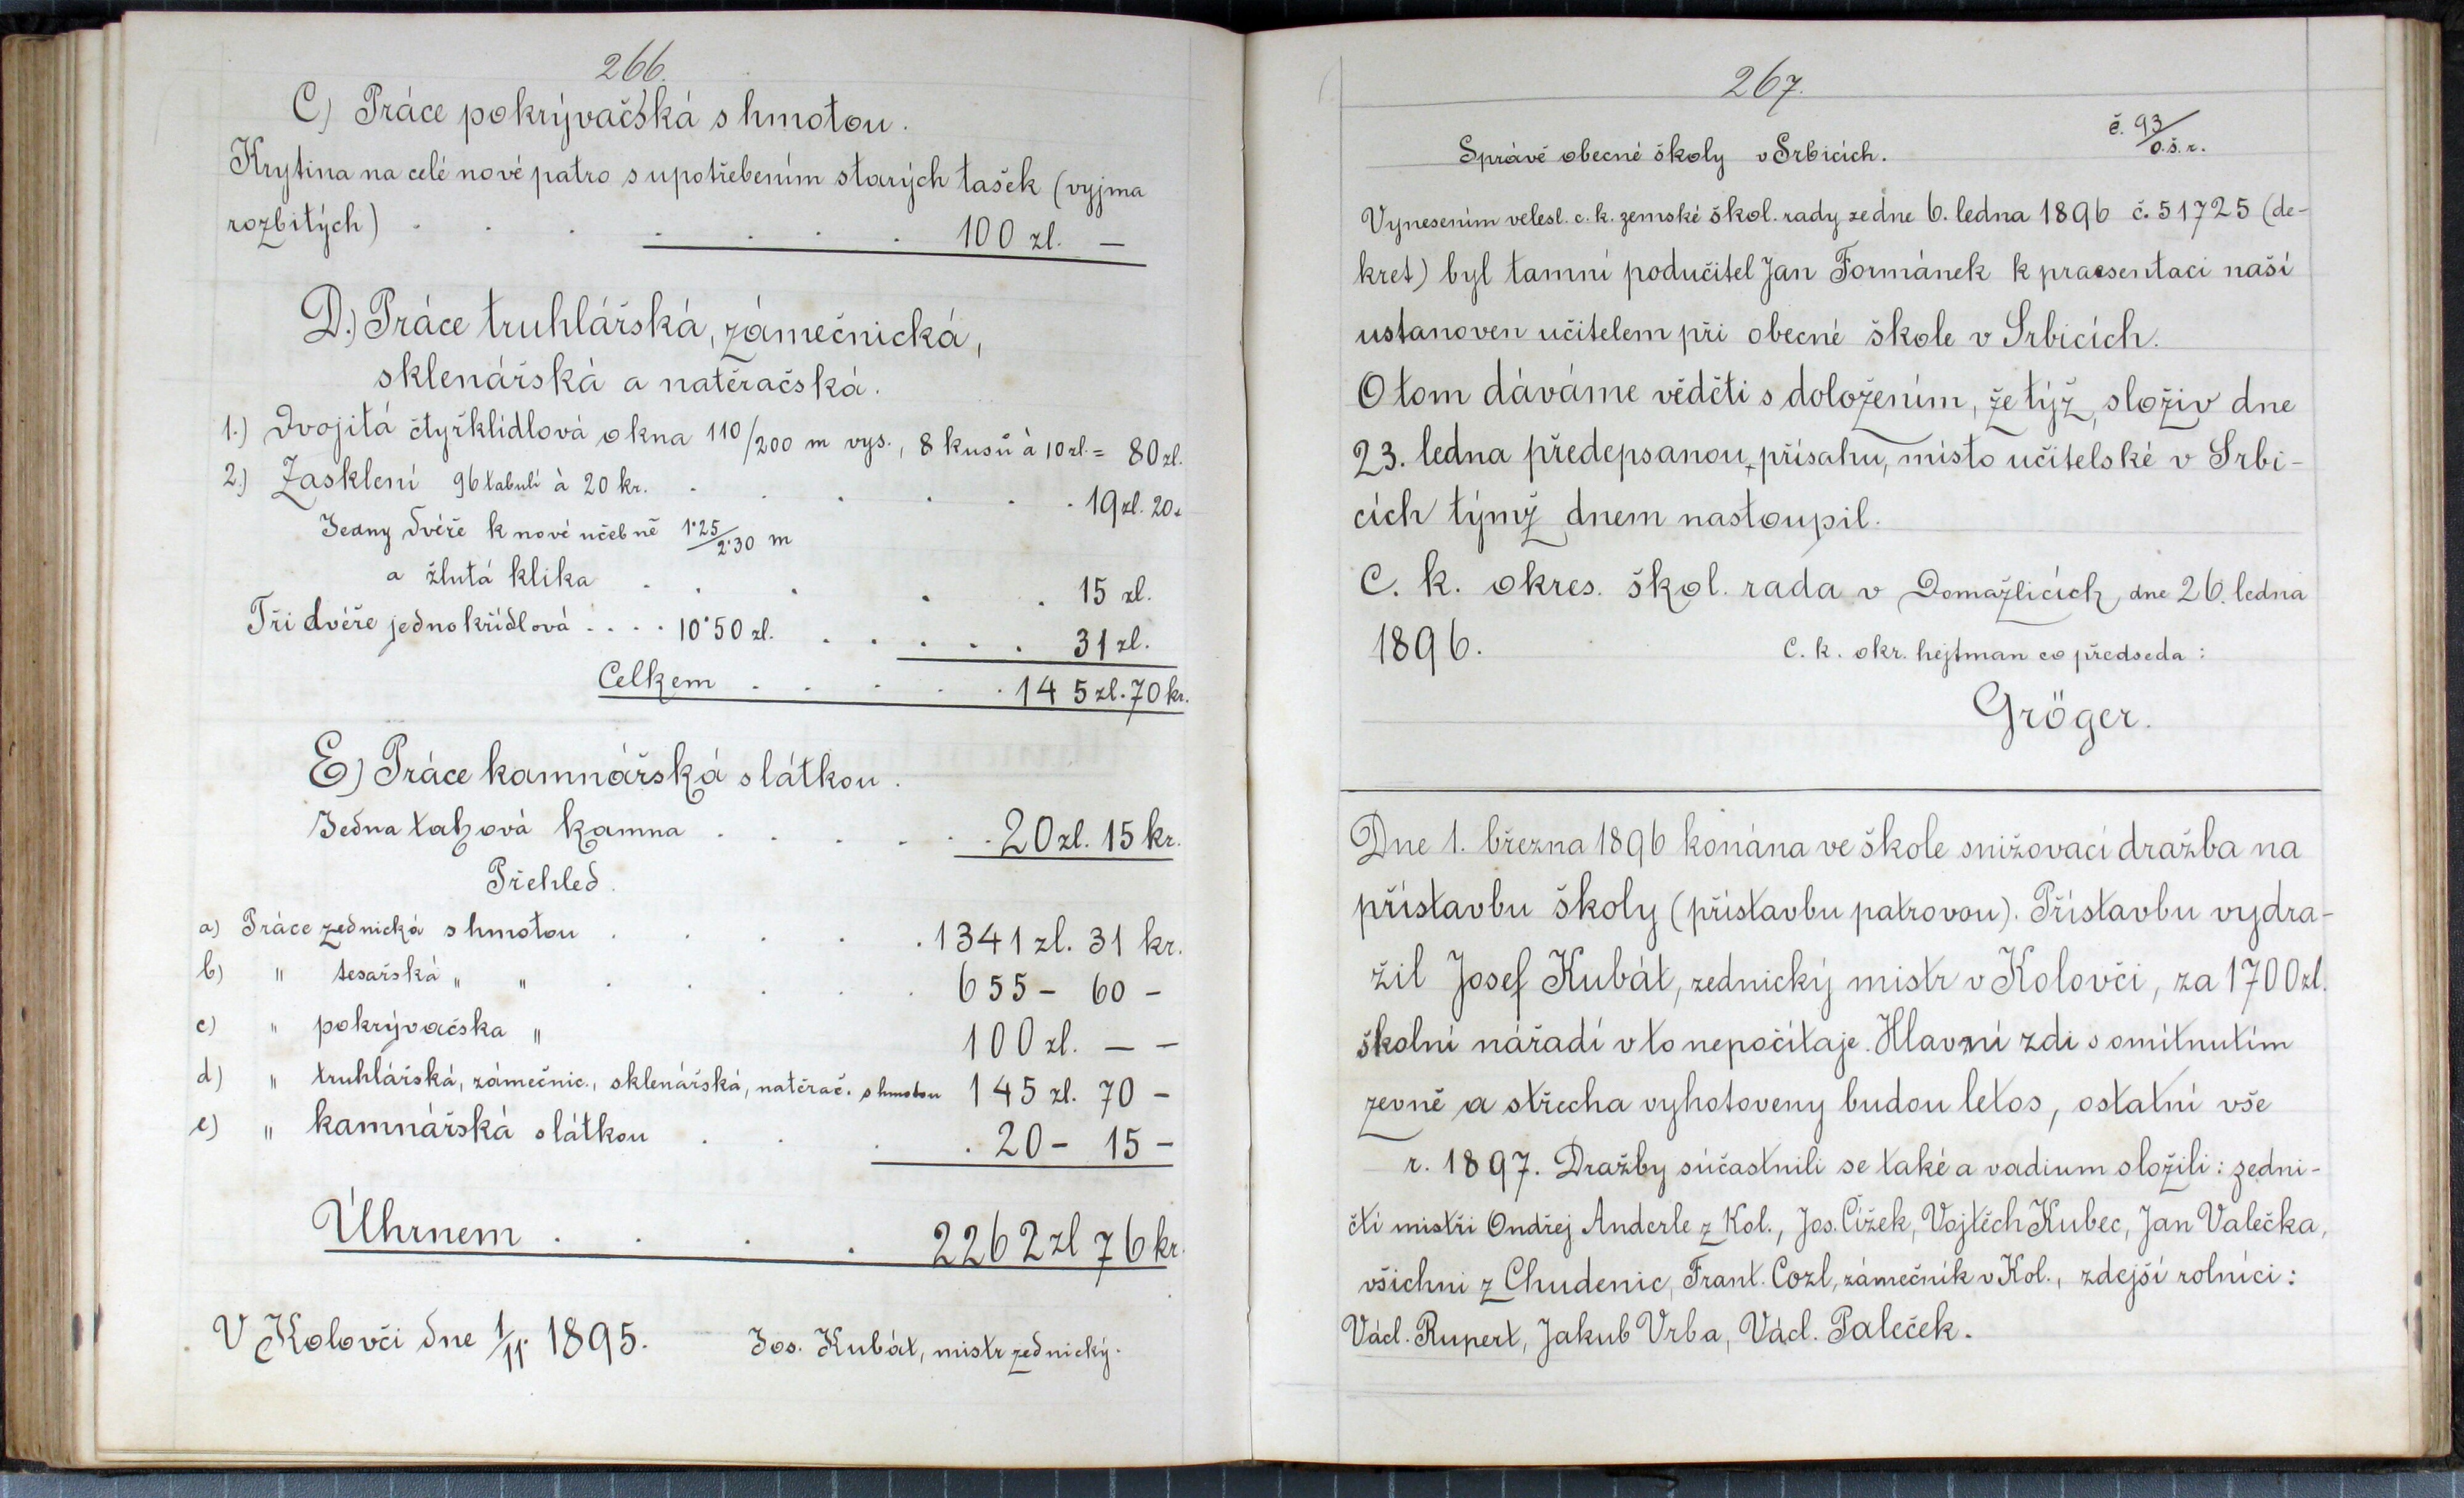 266.
C) Práce pokrývačská s hmotou.
Krytina na celé nové patro s upotřebením starých tašek (vyjma
rozbitých) . . . . . . 100 zl. —
D.) Práce truhlářská, zámečnická,
sklenářská a natěračská.
1.) Dvojitá čtyřklídlová okna 110/200 m vys., 8 kusů à 10 zl. = 80 zl.
2.) Zasklení 96 tabulí à 20 kr. . . . . . 19 zl. 20.
Jedny dvéře k nové učebně 1·25/2·30 m
a žlutá klika . . . . . 15 zl.
Tři dvéře jednokřídlová . . . . 10·50 zl. . . . . . 31 zl.
Celkem . . . . . 145 zl. 70 kr.
E) Práce kamnářská s látkou.
Jedna tahová kamna . . . . . 20 zl. 15 kr.
Přehled.
a) Práce zednická s hmotou . . . . . 1341 zl. 31 kr.
b) " tesařská " " . . . . . 655 - 60 -
c) " pokrývačska " 100 zl. — —
d) " truhlářská, zámečnic., sklenářská, natěrač. s hmotou 145 zl. 70 -
e) " kamnářská s látkou . . . . 20 - 15 -
Úhrnem . . . . 2262 zl 76 kr.
V Kolovči dne 1/11. 1895. Jos. Kubát, mistr zednický.
267.
č. 93/o.š.r.
Správě obecné školy v Srbicích.
Vynesením velesl. c. k. zemské škol. rady ze dne 6. ledna 1896 č. 51725 (de-
kret) byl tamní podučitel Jan Formánek k praesentaci naší
ustanoven učitelem při obecné škole v Srbicích.
O tom dáváme věděti s doložením, že týž, složiv dne
23. ledna předepsanou přísahu, místo učitelské v Srbi-
cích týmž dnem nastoupil.
C. k. okres. škol. rada v Domažlicích, dne 26. ledna
1896. C. k. okr. hejtman co předseda:
Gröger.
Dne 1. března 1896 konána ve škole snižovací dražba na
přístavbu školy (přístavbu patrovou). Přístavbu vydra-
žil Josef Kubát, zednický mistr v Kolovči, za 1700 zl.
školní nářadí v to nepočítaje. Hlavní zdi s omítnutím
zevně a střecha vyhotoveny budou letos, ostatní vše
r. 1897. Dražby súčastnili se také a vadium složili: zedni-
čtí mistři Ondřej Anderle z Kol., Jos. Čížek, Vojtěch Kubec, Jan Valečka,
všichni z Chudenic, Frant. Cozl, zámečník v Kol., zdejší rolníci:
Václ. Rupert, Jakub Vrba, Václ. Paleček.